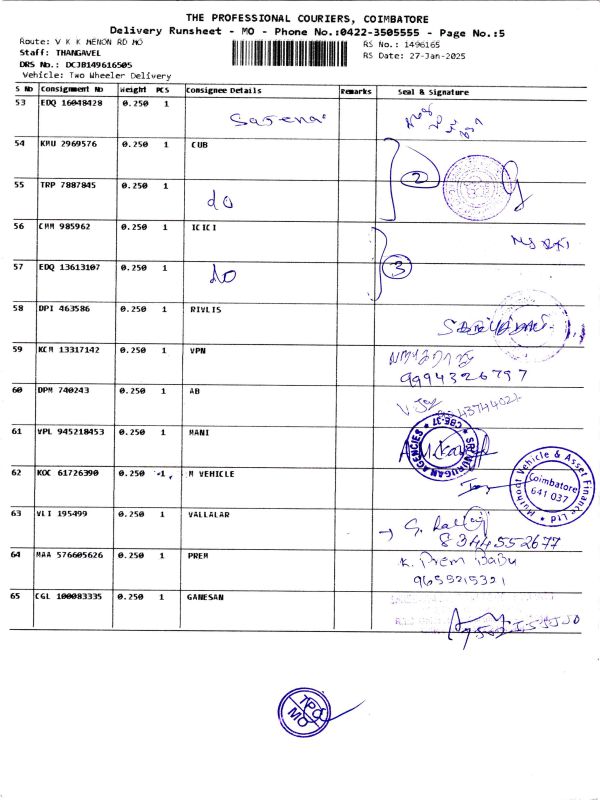 THE PROFESSIONAL COURIERS, COIMBATORE
Delivery Runsheet - MO - Phone No.:0422-3505555 - Page No.:5
Route: V K K MENON RD MO
RS No.: 1496165
Staff: THANGAVEL
RS Date: 27-Jan-2025
DRS No.: DCJB149616505
Vehicle: Two Wheeler Delivery
S No Consignment No Weight PCS Consignee Details Remarks Seal & Signature
53 EDQ 16048428 0.250 1
54 KMU 2969576 0.250 1 CUB
2
55 TRP 7887845 0.250 1 do
56 CMM 985962 0.250 1 ICICI
3
57 EDQ 13613107 0.250 1 do
58 DPI 463586 0.250 1 RIVLIS
59 KCM 13317142 0.250 1 VPN
9994326797
60 DPM 740243 0.250 1 AB
61 VPL 945218453 0.250 1 MANI
SRI MURUGAN AGENCIES CBE-37
62 KOC 61726390 0.250 1 M VEHICLE
Muthoot Vehicle & Asset Finance Ltd
Coimbatore
641 037
63 VLI 195499 0.250 1 VALLALAR
8344552677
64 MAA 576605626 0.250 1 PREM
K. Prem Babu
9655215321
65 CGL 100083335 0.250 1 GANESAN
TPC
MO